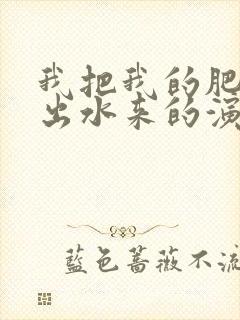 我把我的肥
出水来的演
藍色薔薇不流